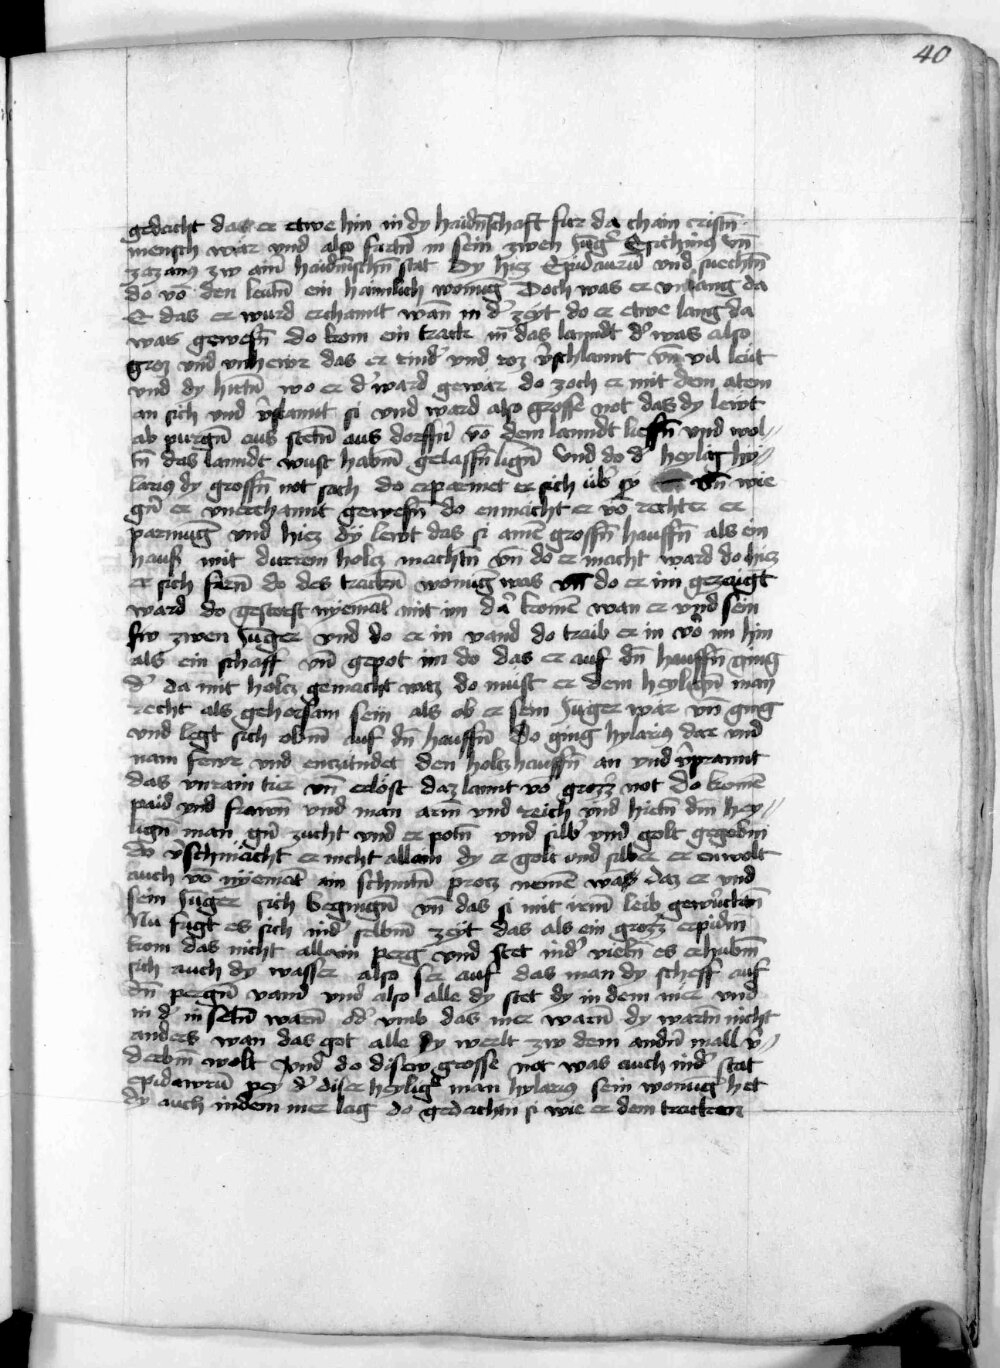 40
gedacht das er etwe hin in dy haidn̄schaft fuer da chain cristn̄
mensch wär vnd also fuertn̄ in sein zwen Jug̾ Esichius vn̄
zazanus zw aim̄ haidnischn̄ stat Dy hiez Epidaurū vnd suechtn̄
do vō den leutn̄ ein haimlich wonūg Doch was er vnlang da
E das er wurd erchannt wan̄ in d̾ zeyt do er etwe lang da
was gewesn̄ do kom ein track in das lanndt d̾ was also
groz vnd vnhewr das er rind̾ vnd roz v̾schlannt vn̄ vil leut
vnd dy hirtn̄ wo er d̾ ward gewar do zoch er mit dem atem
an sich vnd v̾slannt si vnd ward also grosse not das dy lewt
ab purgn̄ aus stetn̄ aus dorffn̄ vō dem lanndt lieffn̄ vnd wol-
tn̄ das lanndt wust habm̄ gelassn̄ lign̄ Vnd do d̾ heylig hy-
larius dy grossn̄ not sach do erparmet er sich üb̾ sy vn̄ wie
gn̄ er vnerchannt gewesn̄ do enmacht er vō rechter er
parmūg vnd hiez dy lewt das si ainē grossn̄ hauffn̄ als ein
haus mit durrem holcz machtn̄ vn̄ do er macht ward do hiez
er sich fuern̄ do des trackn̄ wonūg was vn̄ do er im gezaigt
ward do gestorst nyemāt mit im dar komē wan er vnd sein
zwen Juger vnd do er in vand do traib er in vō im hin
als ein schaff vn̄ gepot im do das er auf dn̄ hauffn̄ ging
d̾ da mit holcz gemacht waz do must er dem heylign̄ man
recht als gehorsam sein als ob er sein Juger wär vn̄ ging
vnd legt sich obm̄ auf dn̄ hauffn̄ Do ging hylarius dar vnd
nam fewr vnd enczündet den holczhauffn̄ an vnd v̾prannt
das vnrain tier vn̄ erlöst daz lannt vō groz̾ not do komē
paid vnd frawn̄ vnd man arm vnd reich vnd hietn̄ dm̄ hey-
lign̄ man gn̄ zucht vnd er potn̄ vnd silb̾ vnd golt gegebm̄
do v̾schmächt er nicht allain dy er golt vnd silber er enwolt
auch vō nyemāt ain schnitn̄ protz nemē was daz er vnd
sein Juger sich begnugn̄ vn̄ das si mit irm̄ leib gewurchtn̄
Nu fugt es sich ind̾ selbm̄ zeyt das als ein groz̾ erpidm̄
kom das nicht allain perg vnd stet ind̾ vieln̄ es erhubm̄
sich auch dy wasser also ser auf das man dy scheff auf
dn̄ pergn̄ vand vnd also alle dy stet dy in dem mer vnd
in d̾ in seln̄ warn̄ od̾ vmb das mer warn̄ dy wartn̄ nicht
anders wan das got alle dy werlt zw dem andn̄ mall v̾-
derbm̄ wolt Vnd do disew grosse not was auch ind̾ stat
epidawrū pey d̾ diser heylig̾ man hylarius sein wonūg het
dy auch indem mer lag do gedachtn̄ si wie er dem tracken